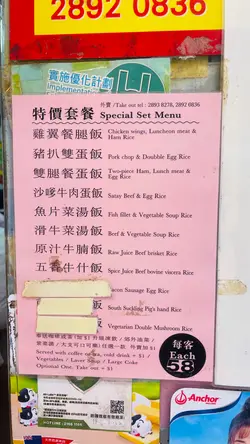 2892 0836
實施優化計劃
Implementation
外賣 /Take out tel : 2893 8278, 2892 0836
特價套餐 Special Set Menu
雞翼餐腿飯 Chicken wings, Luncheon meat & Ham Rice
豬扒雙蛋飯 Pork chop & Doubble Egg Rice
雙腿餐蛋飯 Two-piece Ham, Lunch meat & Egg Rice
沙嗲牛肉蛋飯 Satay Beef & Egg Rice
魚片菜湯飯 Fish fillet & Vegetable Soup Rice
滑牛菜湯飯 Beef & Vegetable Soup Rice
原汁牛腩飯 Raw Juice Beef brisket Rice
五香牛什飯 Spice Juice Beef bovine viscera Rice
Sausage Egg Rice
South Suckling Pig's hand Rice
Vegetation Double Mushroom Rice
每客
Each
58
Served with coffee or tea, cold drink + $1 /
Vegetables / Laver Soup / Large Coke
Optional One, Take out + $1
Anchor